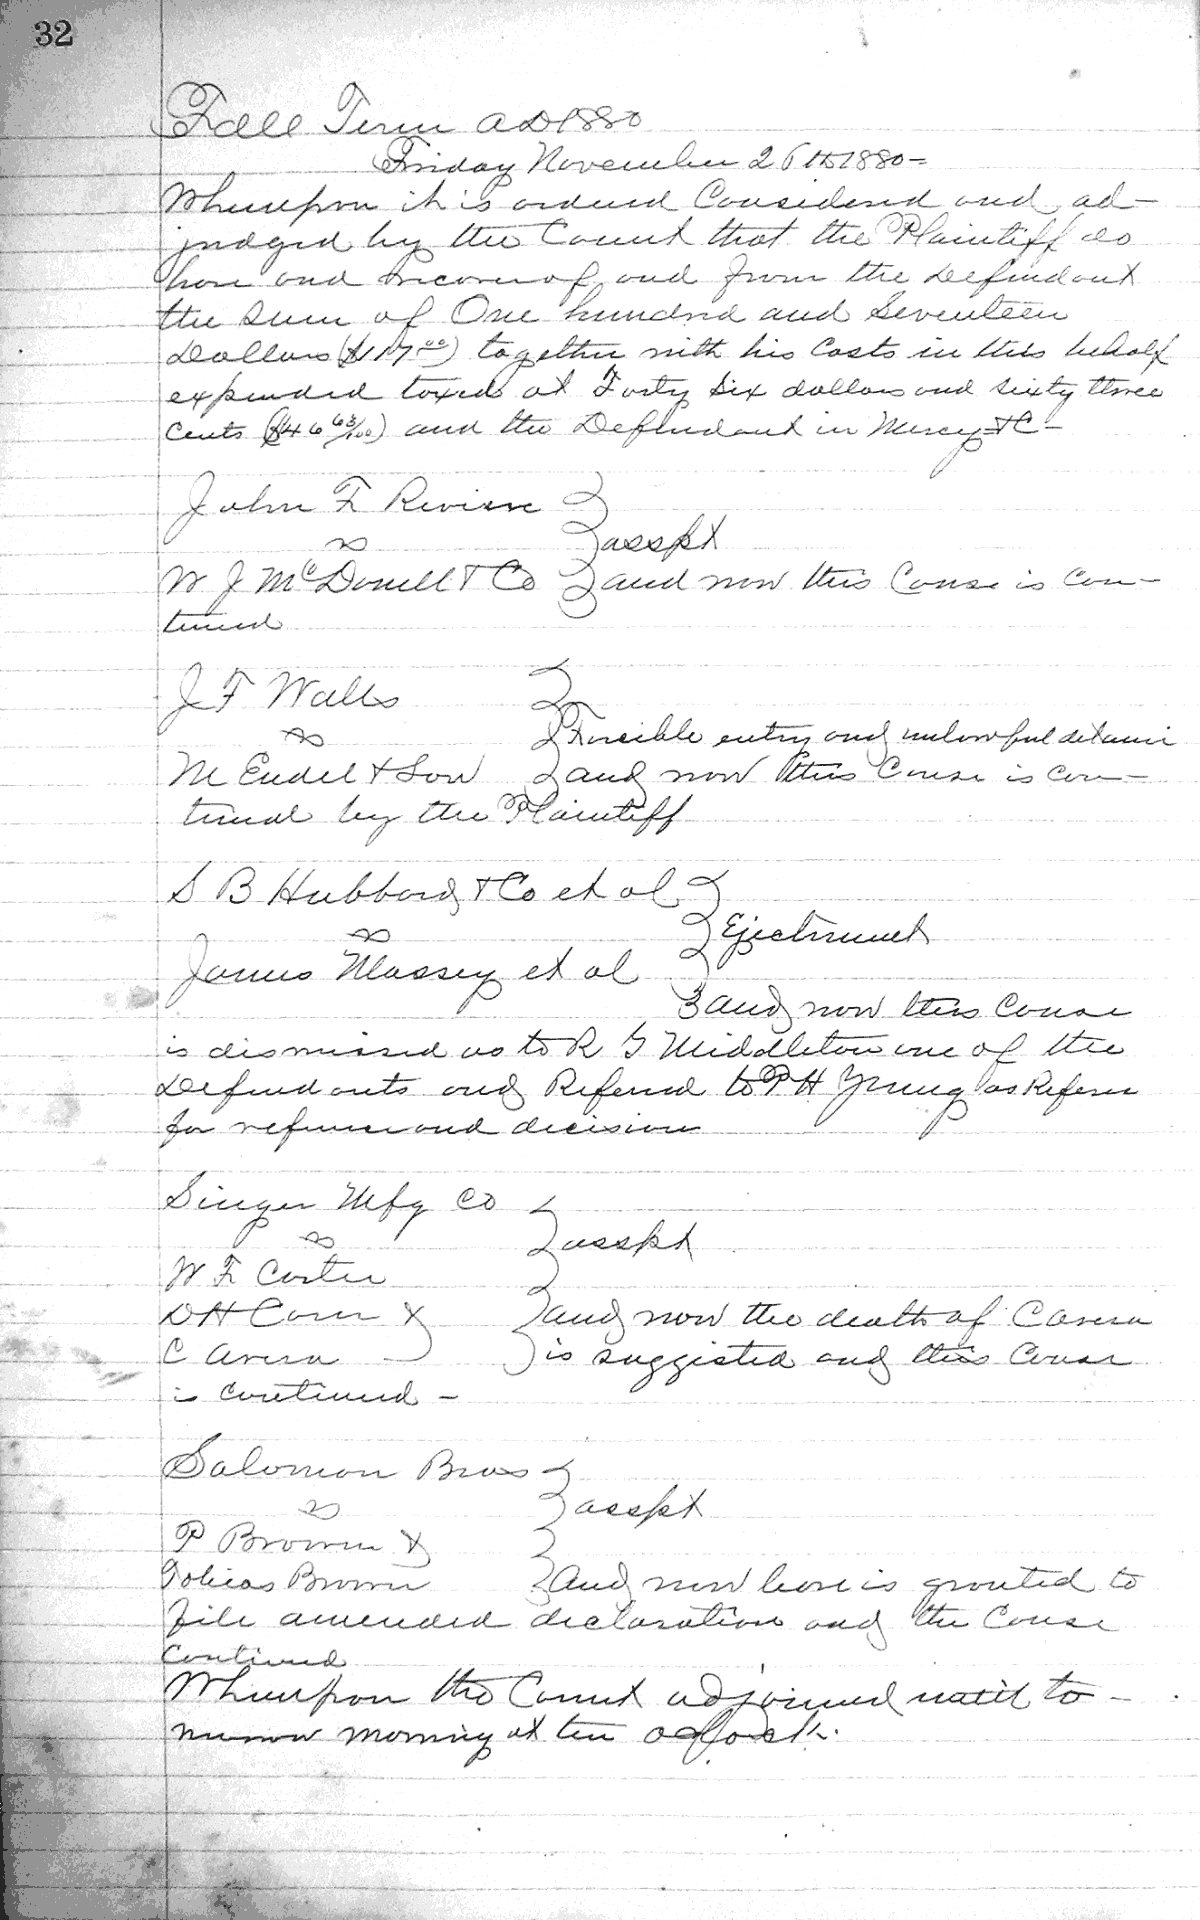 32
Fall Term AD 1880
Friday November 26th 1880 =
Whereupon it is ordered Considered and ad-
judged by the Court that the Plaintiff do
have and recover of and from the Defendant
the Sum of One hundred and Seventeen
Dollars ($117 00) together with his Costs in this behalf
expended taxed at Forty Six dollars and sixty three
Cents ($46 63/100) and the Defendant in Mercy &C-
John F Riviere
vs
asspt
W J McDonell & Co and now this Cause is Con-
tinued
J F Walls
vs
Forcible entry and unlawful detainer
M Endel & Son and now this Cause is con-
tinued by the Plaintiff
S B Hubbard & Co et al
vs
Ejectment
James Massey et al
and now this Cause
is dismissed as to R G Middleton one of the
Defendants and Referred to P H Young as Referee
for reference and decision
Singer Mfg Co
vs
asspt
W F
D H &
C Avera
and now the death of C Avera
is suggested and this Cause
is continued -
Salomon Bros
vs
asspt
P Brown &
Tobias Brown and now leave is granted to
file amended declaration and the Cause
Continued
Whereupon the Court adjourned until to-
morrow morning at ten oclock.